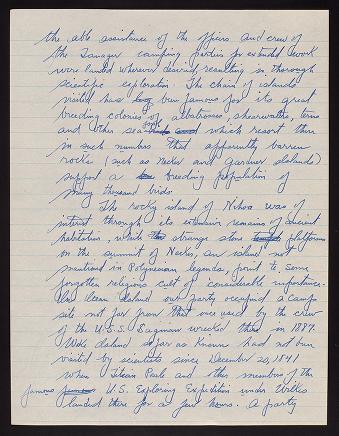 the able assistance of the officers and crew of
the Tanager camping parties for extended work
were landed wherever desired resulting in thorough
scientific exploration. The chain of islands
visited has long been famous for its great
breeding colonies of albatrosses, shearwaters, terns
and other sea fowl which resort then
in such numbers that apparently barren
rocks (such as Necker and Gardner Islands)
support a breeding population of
many thousand birds.
The rocky island of Nihoa was of
interest through its extensive remains of ancient
habitation, while strange stone platforms
on the summit of Necker, an island not
mentioned in Polynesian legends, point to some
forgotten religious cult of considerable importance.
On Ocean Island our party occupied a camp
site not far from that once used by the crew
of the U.S.S. Saginaw wrecked there in
Wake Island so far as known had not been
visited by scientists since December 20, 1841
when Titian Peale and other members of the
famous U.S. Exploring Expedition under Wilkes
landed there for a few hours. A party